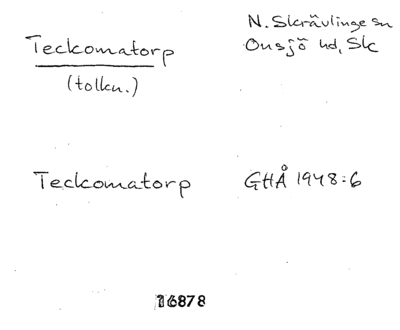 Teckomatorp
(tolkn.)
N. Skrävlinge sn
Onsjö hd, Sk
Teckomatorp GHÅ 1948:6
16878